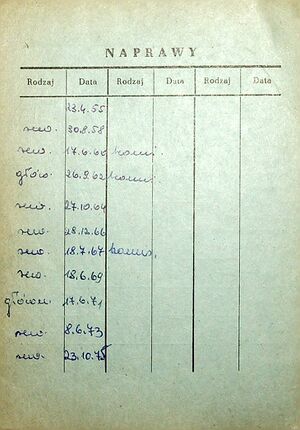 NAPRAWY
Rodzaj Data Rodzaj Data Rodzaj Data
23.4.55
rew. 30.8.58
rew. 17.6.60
główn. 26.9.62
rew. 27.10.64
rew. 28.12.66
rew. 18.7.67
rew. 18.6.69
główn. 17.6.71
rew 8.6.73
rew. 23.10.75